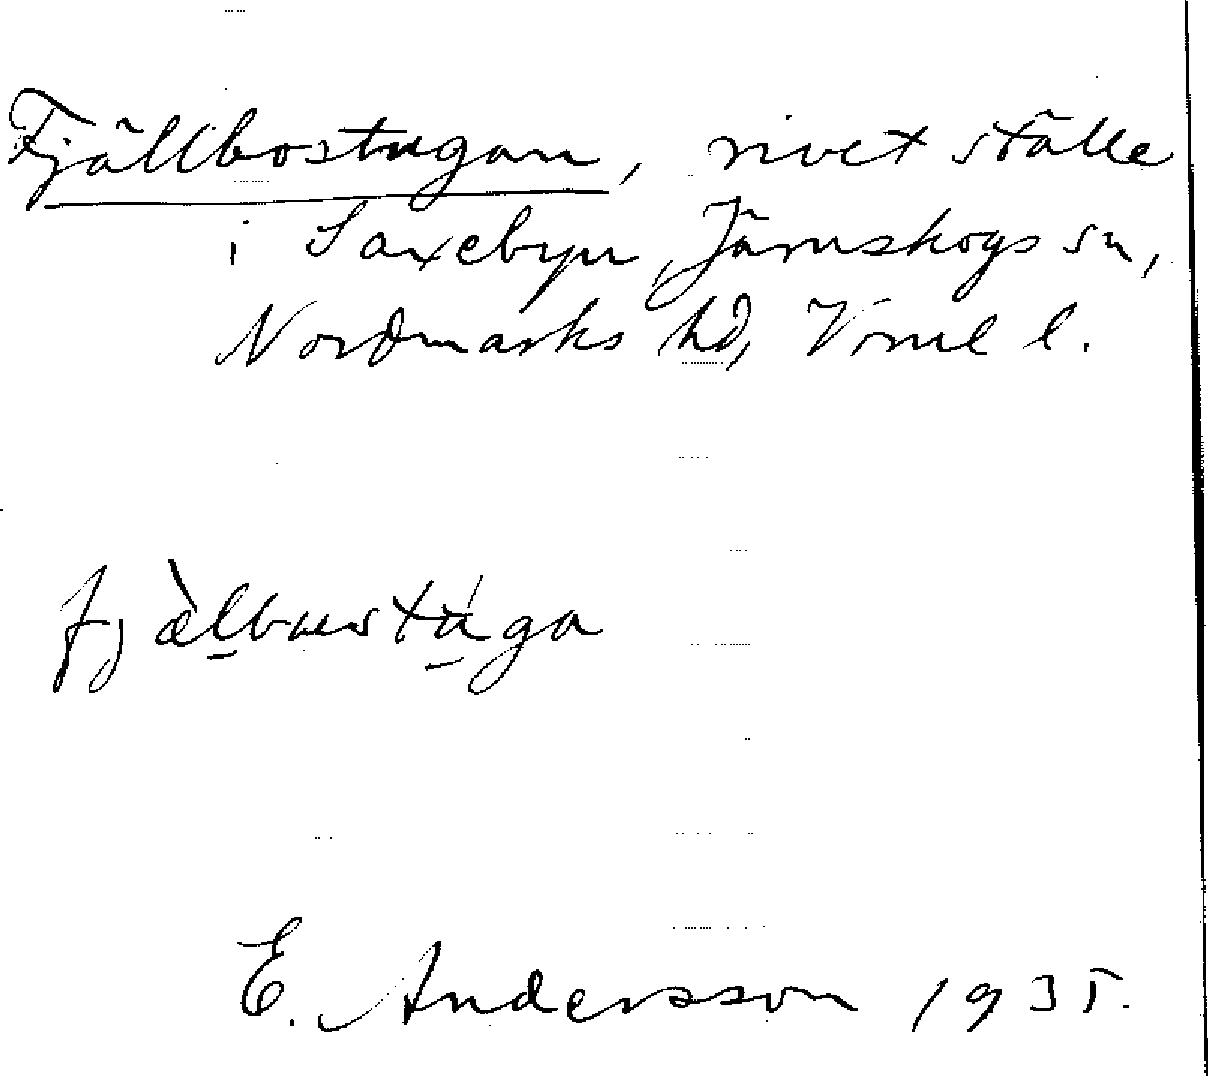 Fjällbostugan, rivet ställe
i Saxebyn, Järnskogs sn,
Nordmarks hd, Vrml l.
E. Andersson 1935.